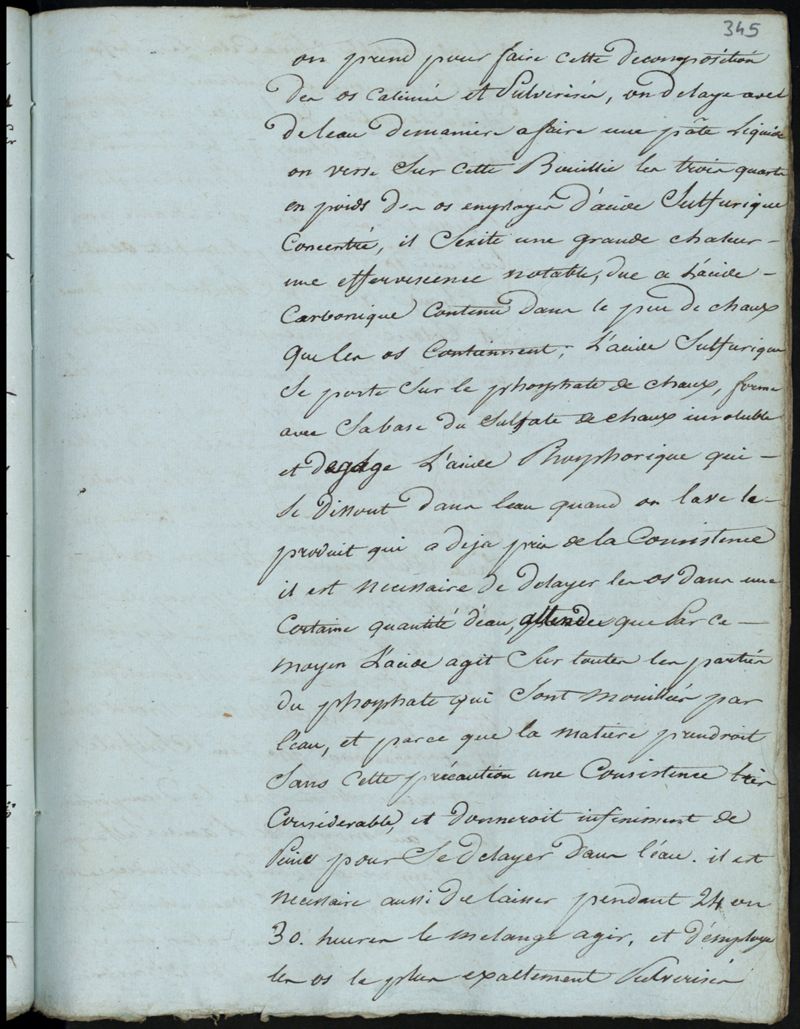 345
on prend pour faire cette decomposition
des os calciné et Pulverisés, on delaye avec
de leau demaniere a faire une pâte Liquide
on verse sur cette Bouillie les trois quarts
en poids des os employés d'acide Sulfurique
Concentré, il s'exite une grande chaleur -
une effervescence notable, due a L'acide -
Carbonique Contenu dans le peu de chaux
que les os Contiennent; L'acide Sulfurique
se porte sur le phosphate de chaux, forme
avec sa base du sulfate de chaux insoluble
et degage L'acide Phosphorique qui -
se dissout dans leau quand on lave le -
produit qui a deja pris de la Consistence
il est necessaire de delayer les os dans une
Certaine quantité d'eau, attendu que Par ce -
moyen L'acide agit sur toutes les parties
du phosphate qui sont mouillés par
l'eau, et parce que la matiere prendroit
sans cette précaution une Consistence très
Considerable, et donneroit infiniment de
Peine pour se delayer dans l'eau. il est
necessaire aussi de laisser pendant 24 ou
30. heures le melange agir, et d'employer
les os le plus exactement Pulverisés